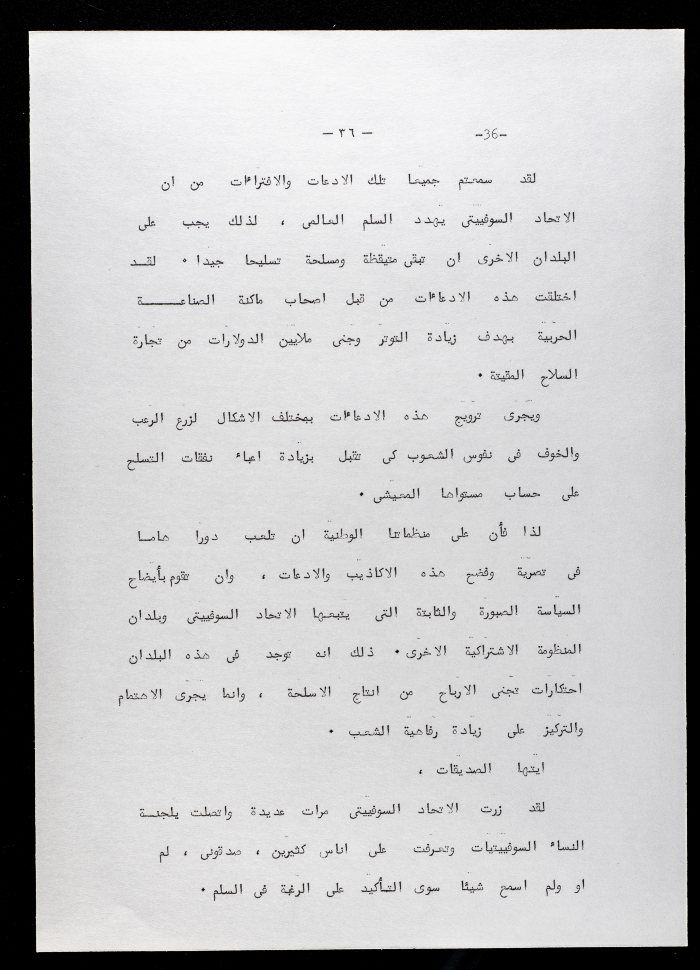 -36-
— ٣٦ —
لقد سمعتم جميعا تلك الادعات والافتراءات من ان
الاتحاد السوفييتى يهدد السلم العالمى ، لذلك يجب على
البلدان الاخرى ان تبقى متيقظة ومسلحة تسليحا جيدا • لقـد
اختلقت هذه الادعاءات من قبل اصحاب ماكنة الصناعـــــة
الحربية بهدف زيادة التوتر وجنى ملايين الدولارات من تجارة
السلاح المقيتة •
ويجرى ترويج هذه الادعاءات بمختلف الاشكال لزرع الرعب
والخوف فى نفوس الشعوب كى تتقبل بزيادة اعباء نفقات التسلح
على حساب مستواها المعيشى •
لذا فأن على منظماتنا الوطنية ان تلعب دورا هامـا
فى تعرية وفضح هذه الاكاذيب والادعات ، وان تقوم بأيضاح
السياسة الصبورة والثابتة التى يتبعها الاتحاد السوفييتى وبلدان
المنظومة الاشتراكية الاخرى • ذلك انه توجد فى هذه البلدان
احتكارات تجنى الارباح من انتاج الاسلحة ، وانما يجرى الاهتمام
والتركيز على زيادة رفاهية الشعب •
ايتها الصديقات ،
لقد زرت الاتحاد السوفييتى مرات عديدة واتصلت يلجنـة
النساء السوفييتيات وتعرفت على اناس كثيرين ، صدقونى ، لم
او ولم اسمع شيئا سوى التأكيد على الرغبة فى السلم •